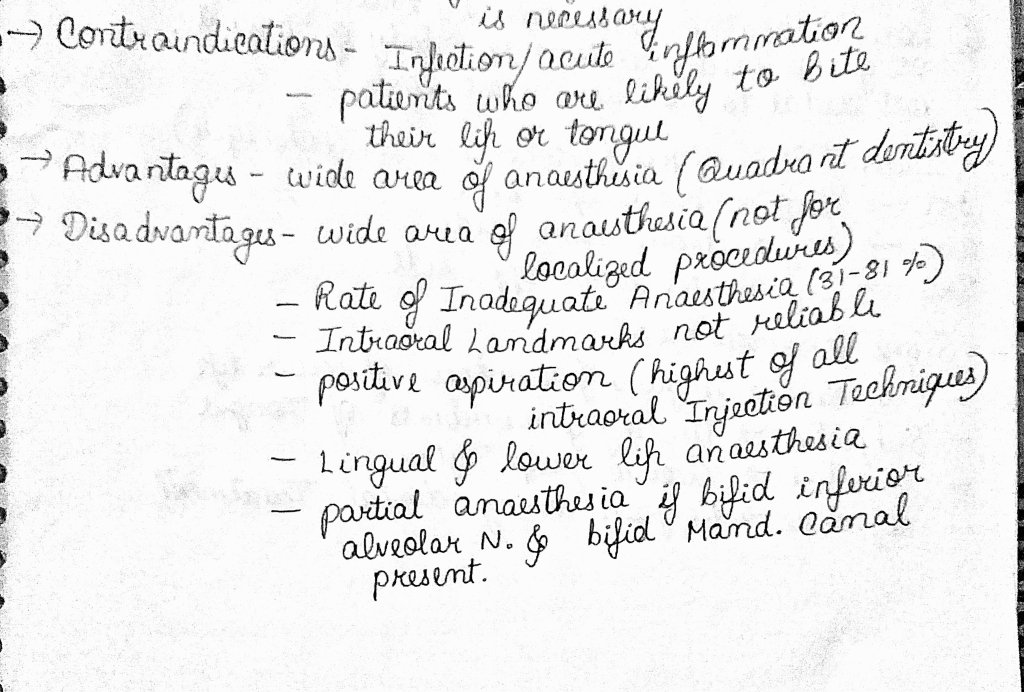 is necessary
→ Contraindications - Infection/acute inflammation
- patients who are likely to bite
their lip or tongue
→ Advantages - wide area of anaesthesia (Quadrant dentistry)
→ Disadvantages - wide area of anaesthesia (not for
localized procedures)
- Rate of Inadequate Anaesthesia (31-81%)
- Intraoral Landmarks not reliable
- positive aspiration (highest of all
intraoral Injection Techniques)
- Lingual & lower lip anaesthesia
- partial anaesthesia if bifid inferior
alveolar N. & bifid Mand. Canal
present.